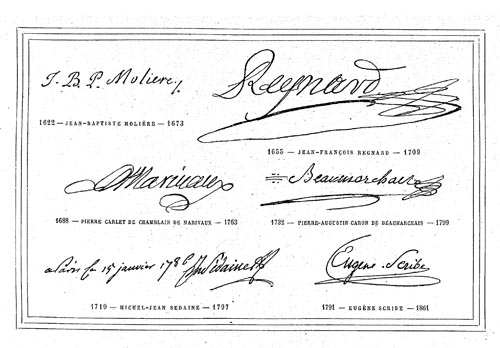 J. B. P. Moliere
Regnard
1622 — JEAN-BAPTISTE MOLIÈRE — 1673
1655 — JEAN-FRANÇOIS REGNARD — 1709
Marivaux
Beaumarchais
1688 — PIERRE CARLET DE CHAMBLAIN DE MARIVAUX — 1763
1732 — PIERRE-AUGUSTIN CARON DE BEAUMARCHAIS — 1799
a Paris ce 15 janvier 1786 Sedaine
Eugène Scribe
1719 — MICHEL-JEAN SEDAINE — 1797
1791 — EUGÈNE SCRIBE — 1861